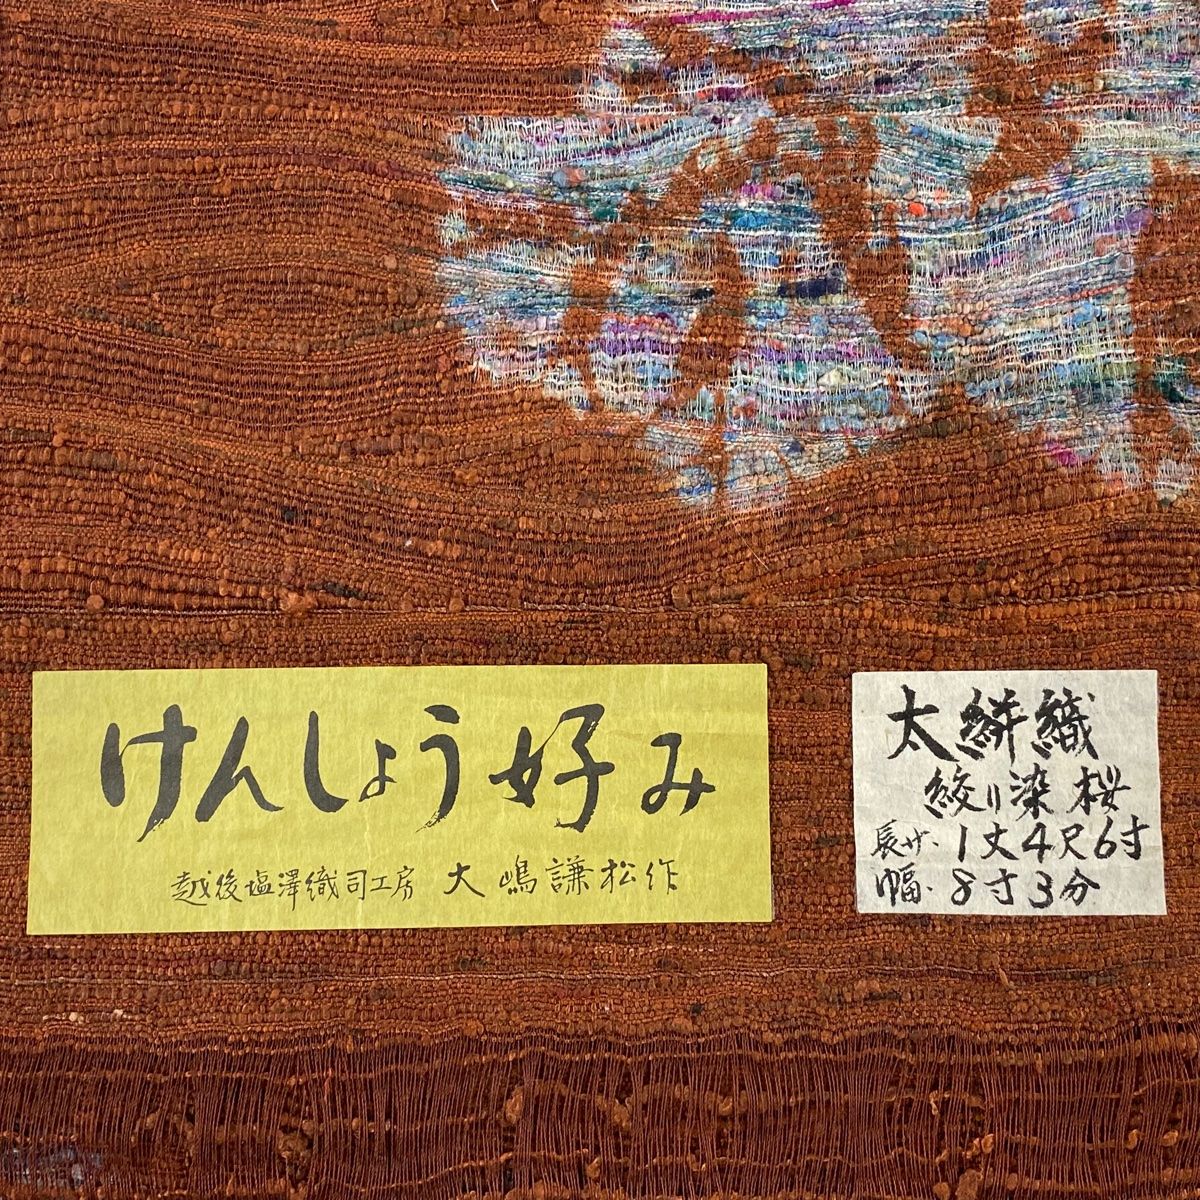 けんしょう好み
越後塩澤織司工房 大嶋謙松作
太絣織
絞り染 桜
長サ. 1丈4尺6寸
巾幅. 8寸3分